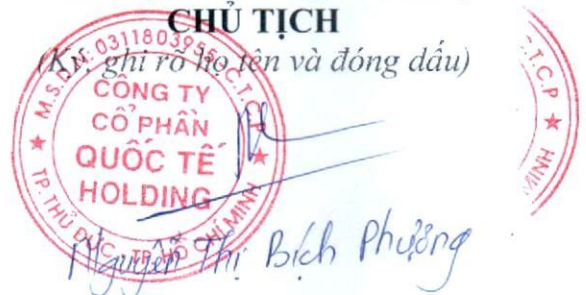 CHỦ TỊCH
(Ký, ghi rõ họ tên và đóng dấu)
M.S.D.N: 0311803955-C.T.C.P
CÔNG TY
CỔ PHẦN
QUỐC TẾ
HOLDING
TP. THỦ ĐỨC - TP. HỒ CHÍ MINH
Nguyễn Thị Bích Phượng
T.C.P
MINH